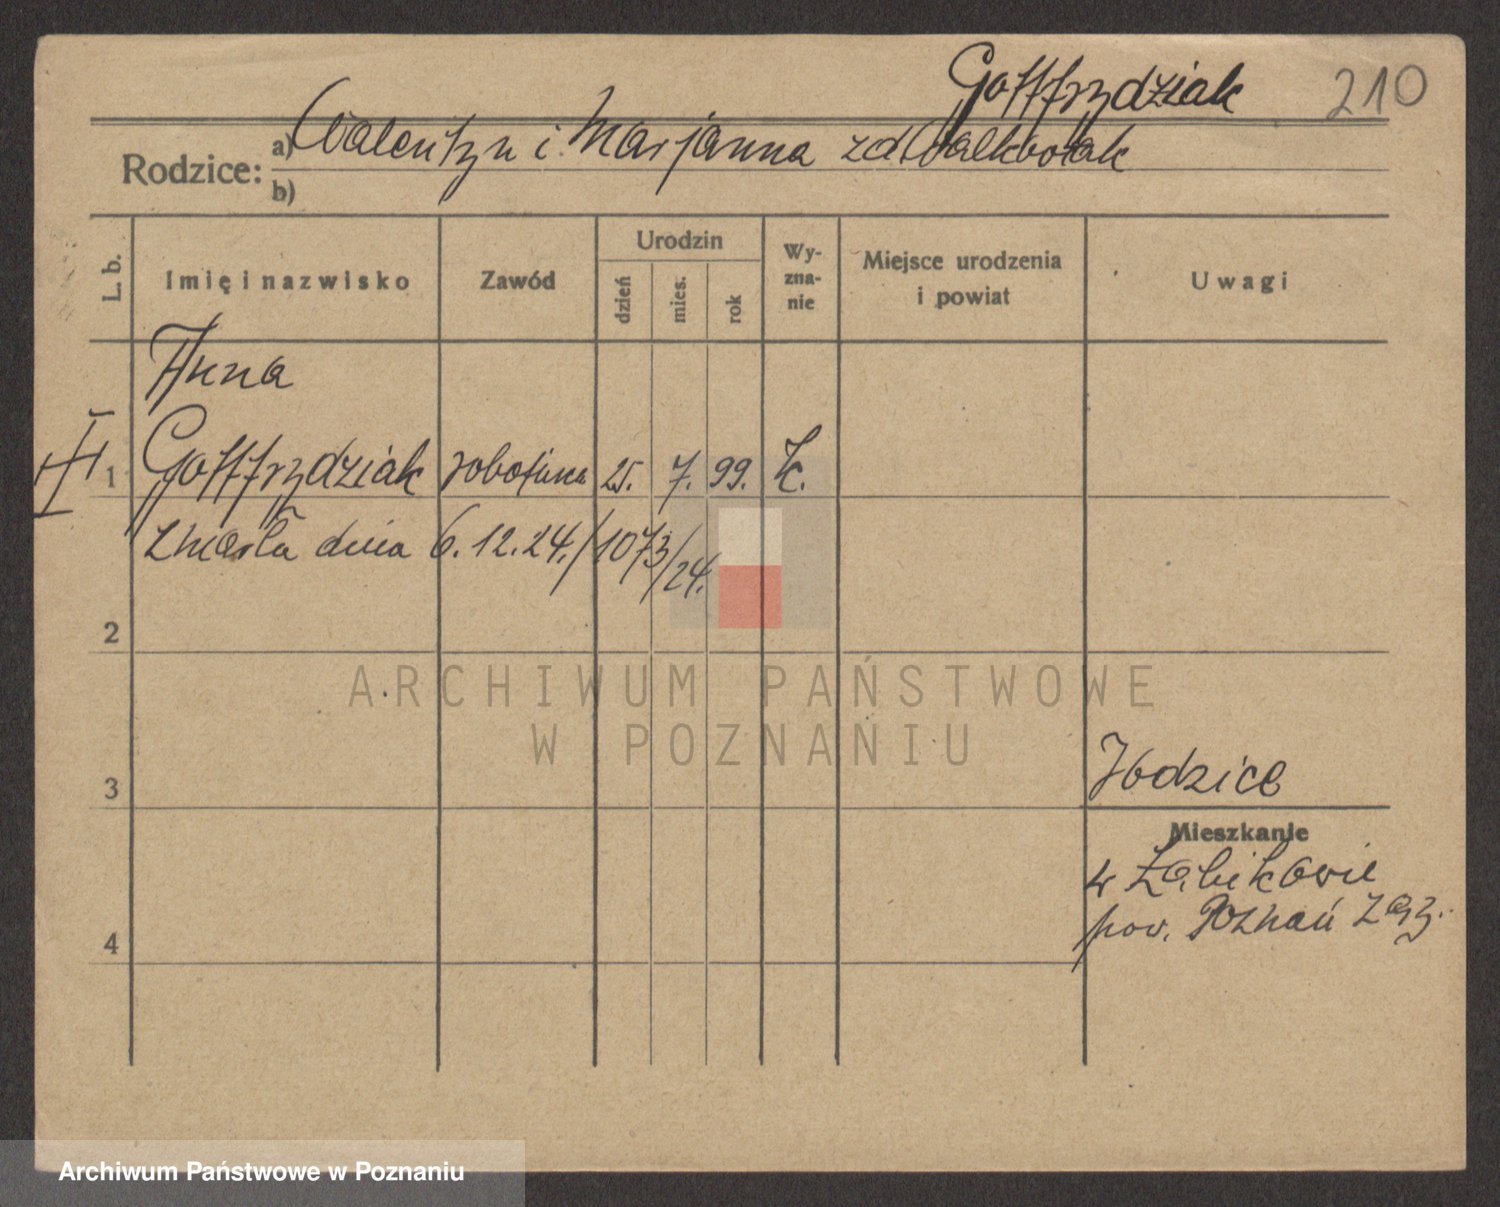 Gottfrydziak 210
Rodzice: a) Walentyn i Marjanna zd Walkowiak
b)
L. b. Imię i nazwisko Zawód Urodzin dzień mies. rok Wy-zna-nie Miejsce urodzenia i powiat Uwagi
Anna
1 Gottfrydziak robotnica 25. 7. 99. k.
zmarła dnia 6.12.24. / 1073/24.
2
ARCHIWUM PAŃSTWOWE
W POZNANIU
3 Rodzice
Mieszkanie
w Żabikowie
4 pow. Poznań zach.
Archiwum Państwowe w Poznaniu